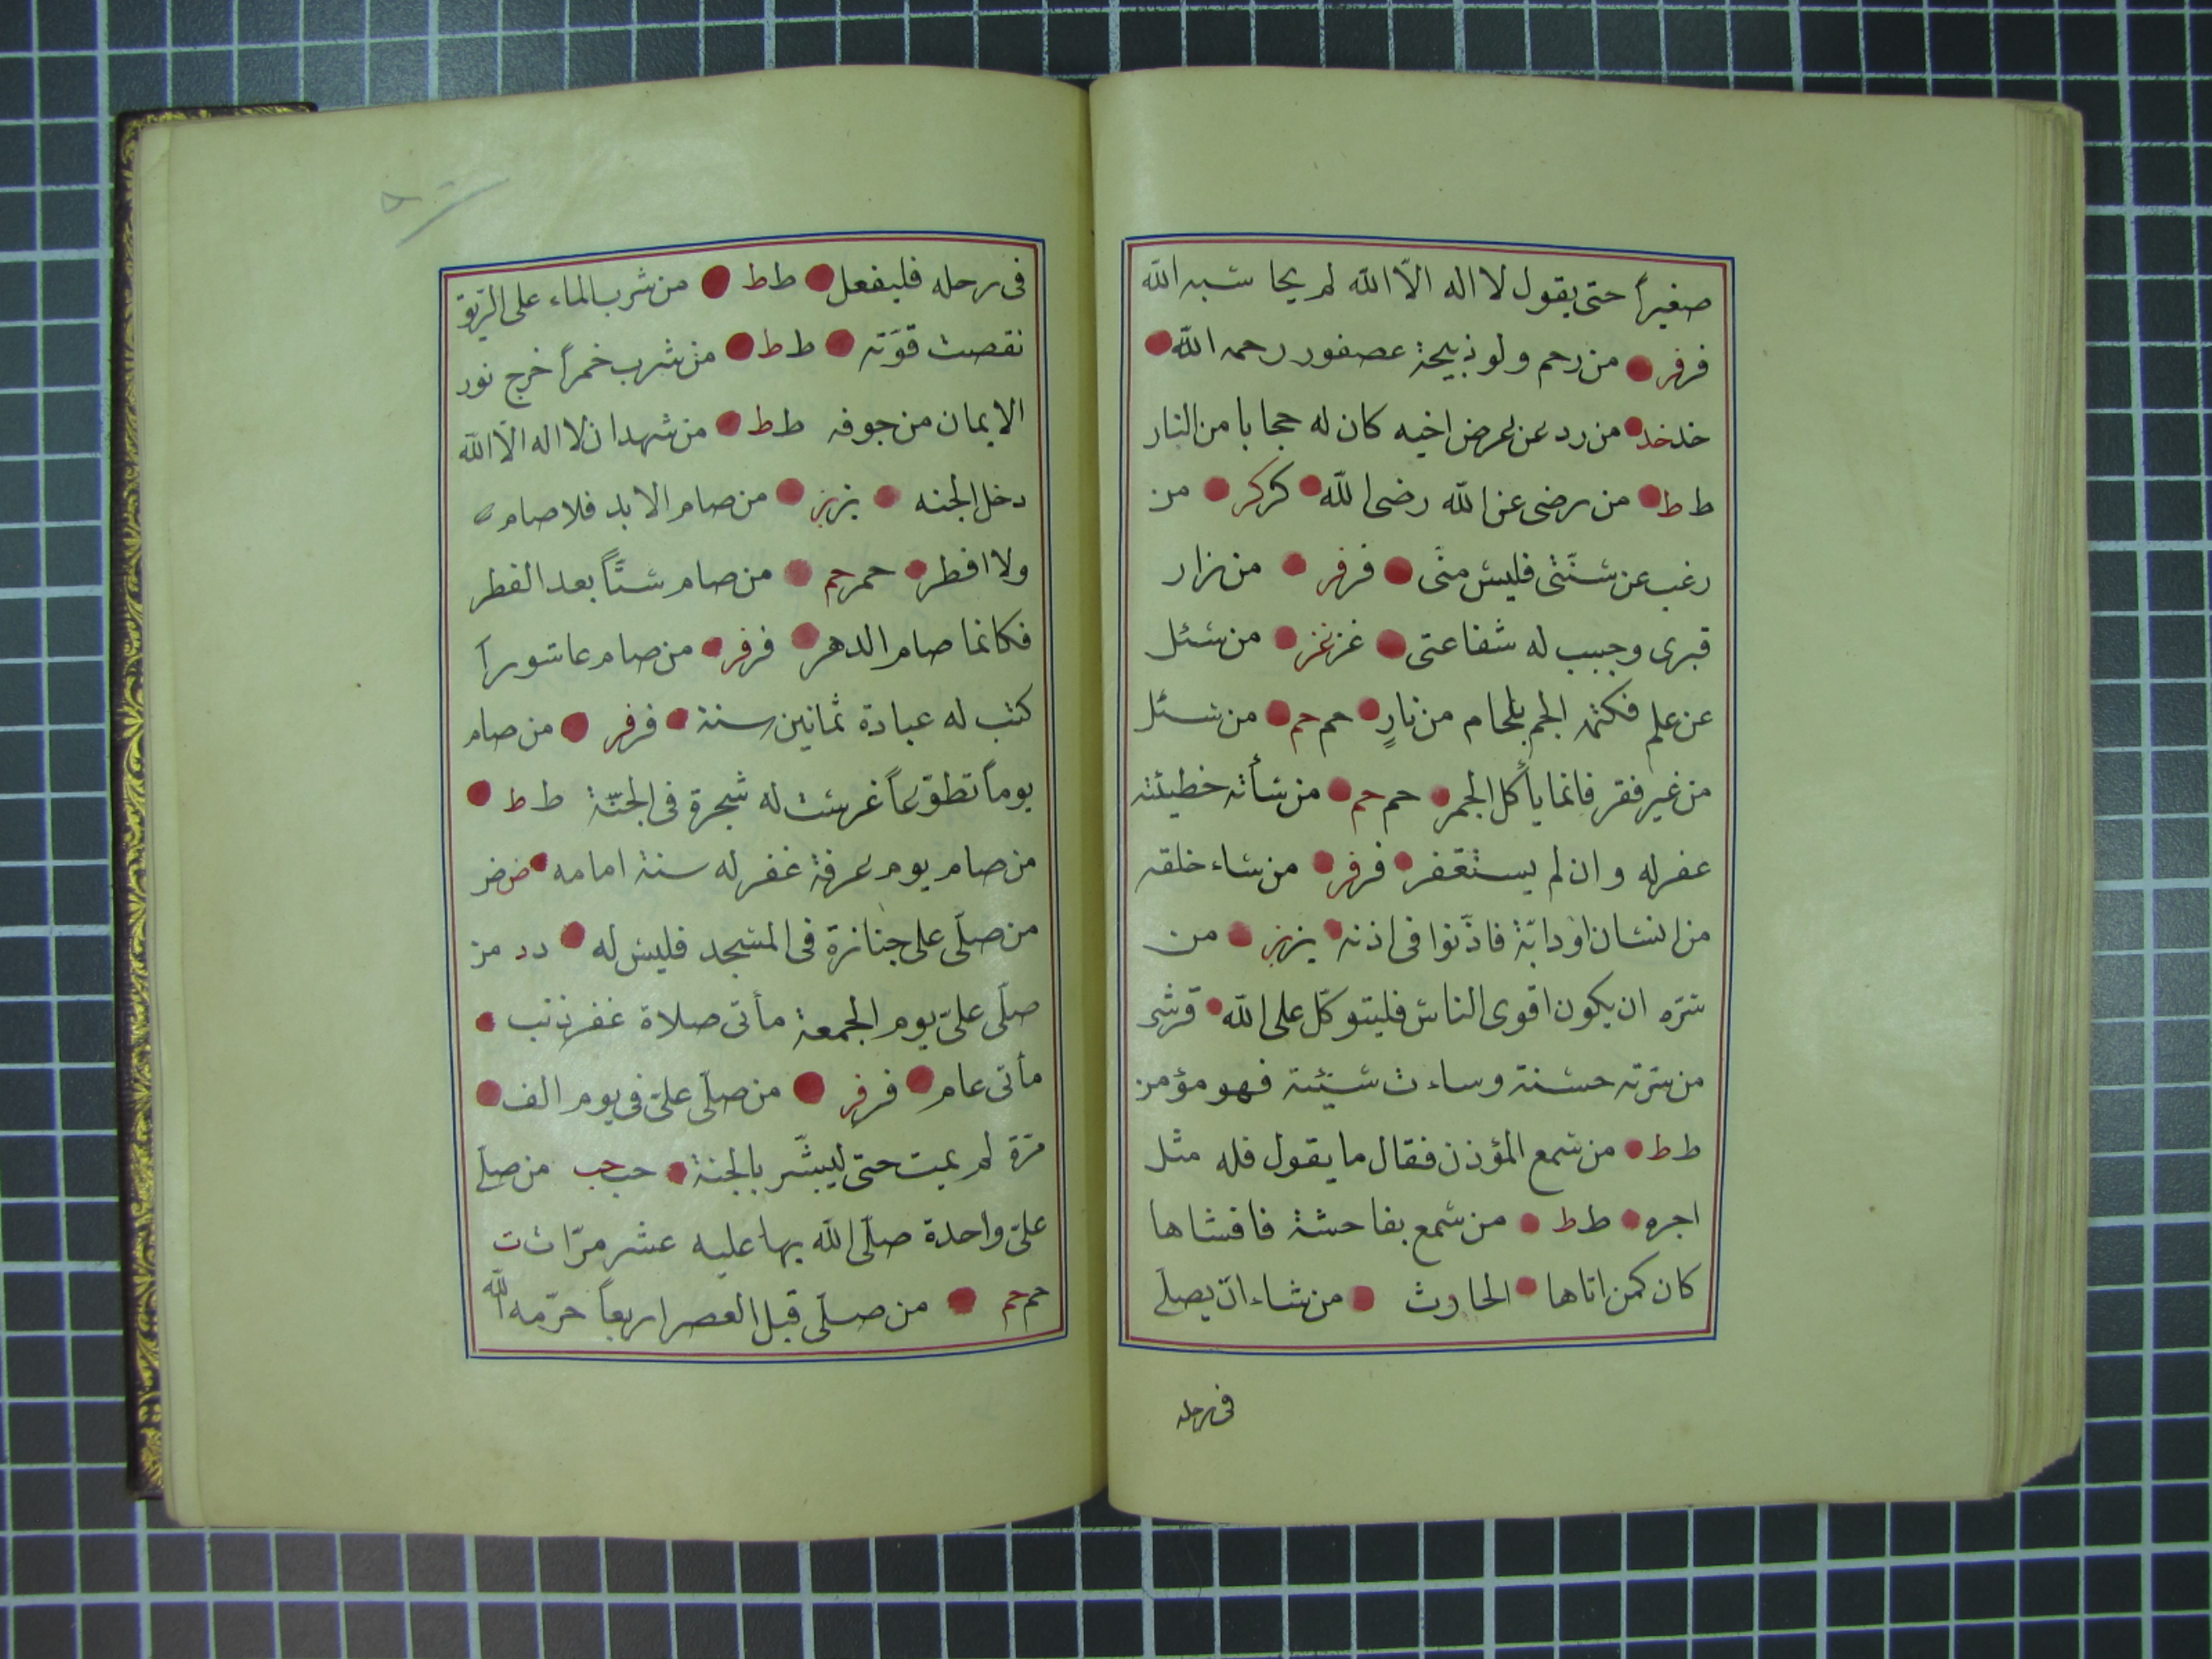 صغيراً حتى يقول لا اله الّا الله لم يحاسبه الله
فر فر من رحم ولو ذبيحة عصفور رحمه الله
خد خد من رد عن عرض اخيه كان له حجابا من النار
ط ط من رضى عن الله رضى الله كر كر من
رغب عن سنّتى فليس منّى فر فر من زار
قبرى وجبب له شفاعتى غز غز من سئل
عن علم فكتمه الجم بلجام من نارٍ حم حم من سئل
من غير فقر فانما يأكل الجمر حم حم من سأته خطيئته
عفر له وان لم يستغفر فر فر من ساء خلقه
من انسان او دابّة فاذّنوا فى اذنه بز بز من
سرّه ان يكون اقوى الناس فليتوكّل على الله
من سرّته حسنة وساءت سيّئة فهو مؤمن
ط ط من سمع المؤذن فقال ما يقول فله مثل
اجره ط ط من سمع بفاحشة فافشاها
كان كمن اتاها الحاوث من شاء ان يصلّى
فى رحله
فى رحله فليفعل ط ط من شرب الماء على الرّيق
نقصت قوّته ط ط من شرب خمراً خرج نور
الايمان من جوفه ط ط من شهد ان لا اله الّا الله
دخل الجنه بز بز من صام الابد فلا صام
ولا افطر حم حم من صام ستّاً بعد الفطر
فكانما صام الدهر فر فر من صام عاشورآ
كتب له عبادة ثمانين سنة فر فر من صام
يوماً تطوّعاً غرست له شجرة فى الجنّة ط ط
من صام يوم عرفة غفر له سنة امامه ض ض
من صلّى على جنازة فى المسجد فليس له د د من
صلّى علىّ يوم الجمعة مأتى صلاة غفر ذنب
مأتى عام فر فر من صلّى علىّ فى يوم الف
مرّة لم يمت حتى ليبشّر بالجنة حب حب من صلّى
علىّ واحدة صلّى الله بها عليه عشر مرّات ت
حم حم من صلّى قبل العصر اربعاً حرّمه الله